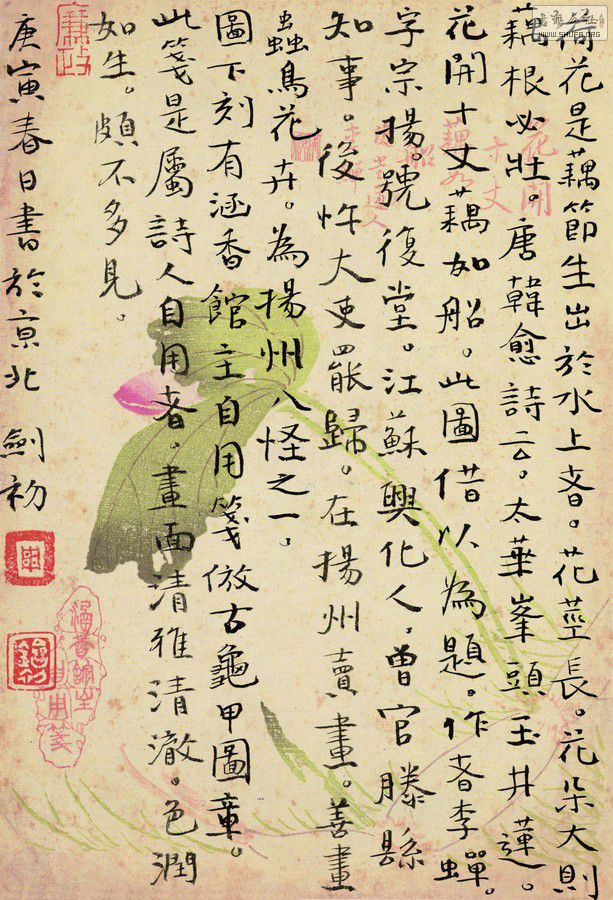 荷花是藕節生出於水上者。花莖長。花朵大則
藕根必壯。唐韓愈詩云。太華峯頭玉井蓮。
花開十丈藕如船。此圖借以為題。作者李蟬。
字宗揚。號復堂。江蘇興化人。曾官滕縣
知事。後忤大吏罷歸。在揚州賣畫。善畫
蟲鳥花卉。為揚州八怪之一。
圖下刻有涵香館主自用箋倣古龜甲圖章。
此箋是屬詩人自用者。畫面清雅清澈。色潤
如生。頗不多見。
庚寅春日書於京北 劍初
花開
十丈
船
涵香館主
自用箋
WWW.SHUFA.ORG